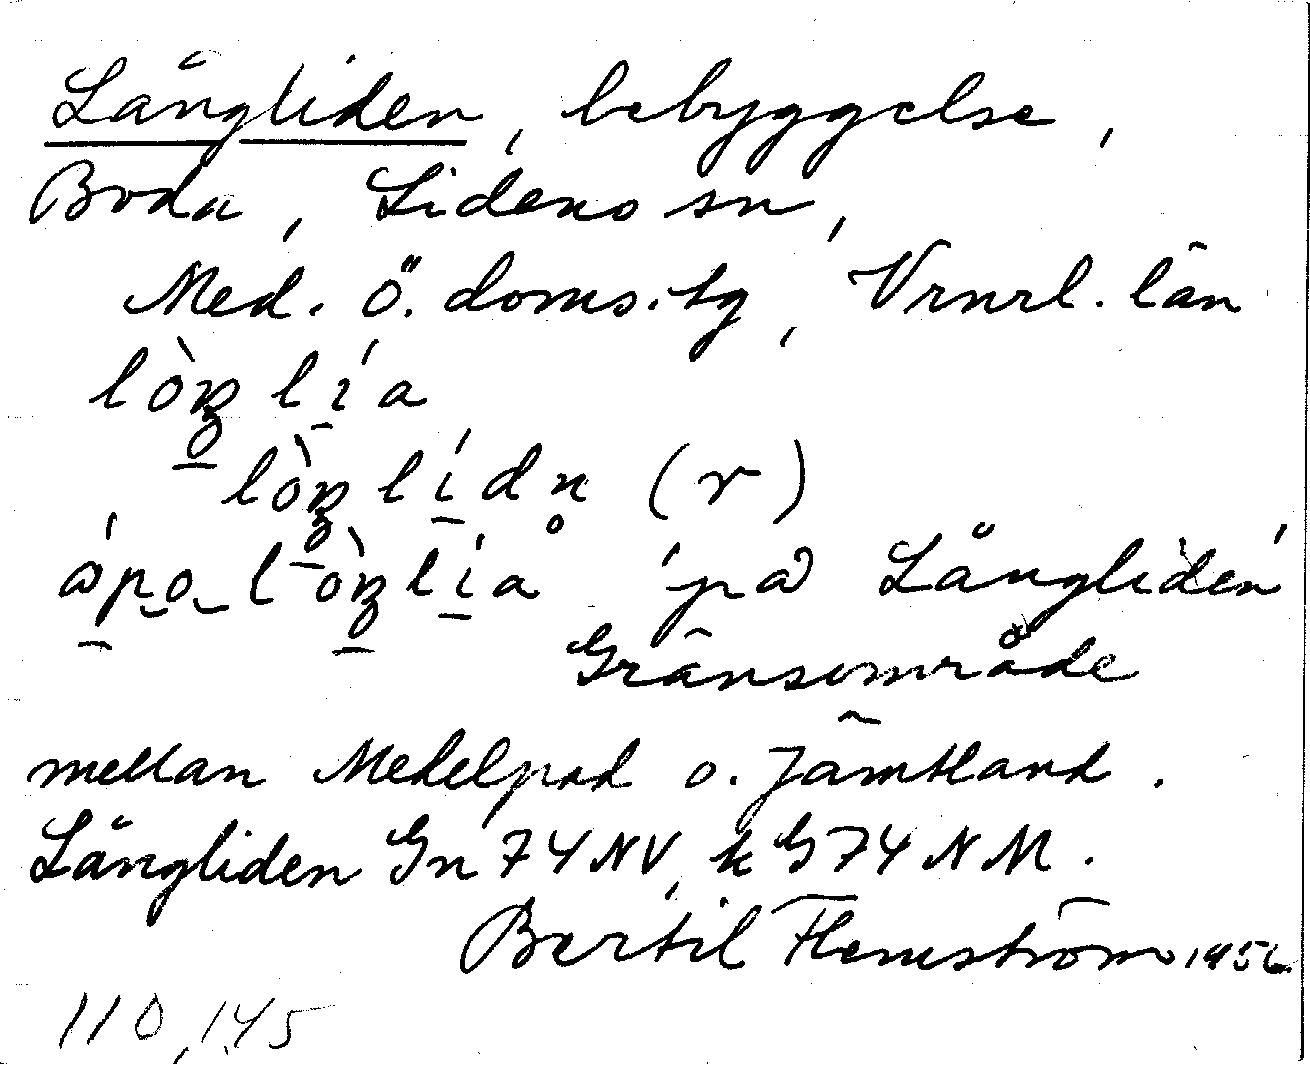 Långliden, bebyggelse,
Boda, Lidens sn,
Med. Ö. doms. tg, Vrnrl. län
lòŋlía
lòŋlídn̥ (r)
lòŋlía 'på Långliden'
Gränsområde
mellan Medelpad o. Jämtland.
Långliden Gn 74 NV, k G 74 N M.
Bertil Flemström 1956
110, 145